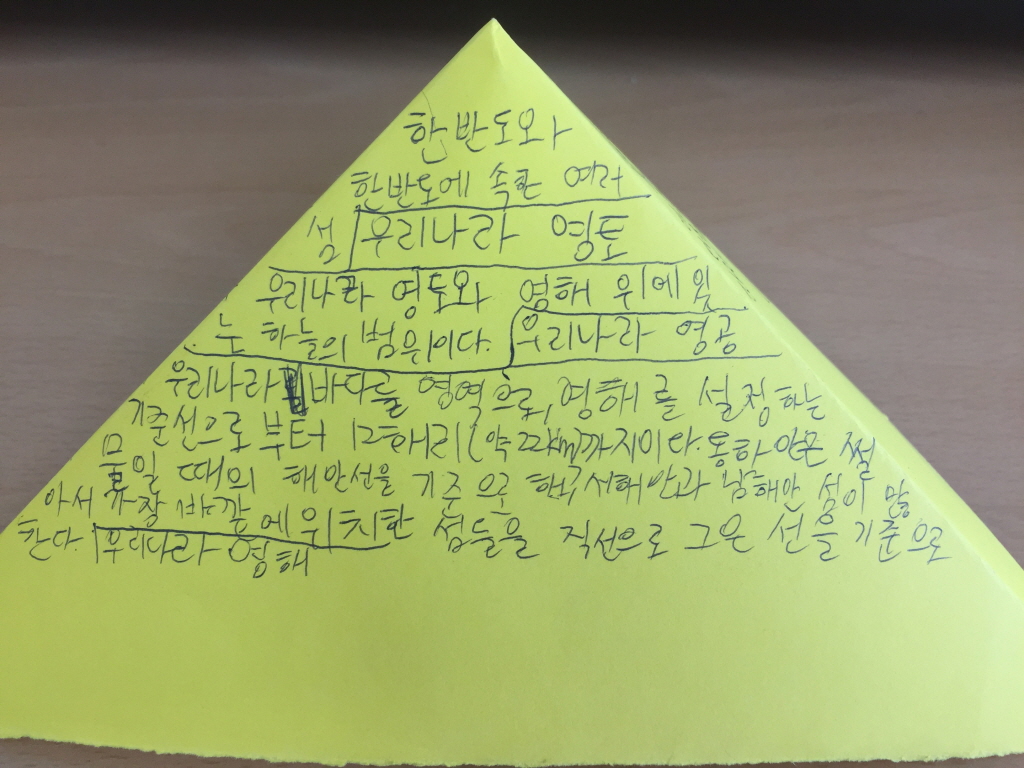 한반도와
한반도에 속한 여러
섬 우리나라 영토
우리나라 영토와 영해 위에 있
는 하늘의 범위이다. 우리나라 영공
우리나라 바다를 영역으로, 영해를 설정하는
기준선으로부터 12해리(약 22km)까지이다. 동해안은 썰
물일 때의 해안선을 기준으로 하구 서해안과 남해안 섬이 많
아서 가장 바깥에 위치한 섬들을 직선으로 그은 선을 기준으로
한다. 우리나라 영해